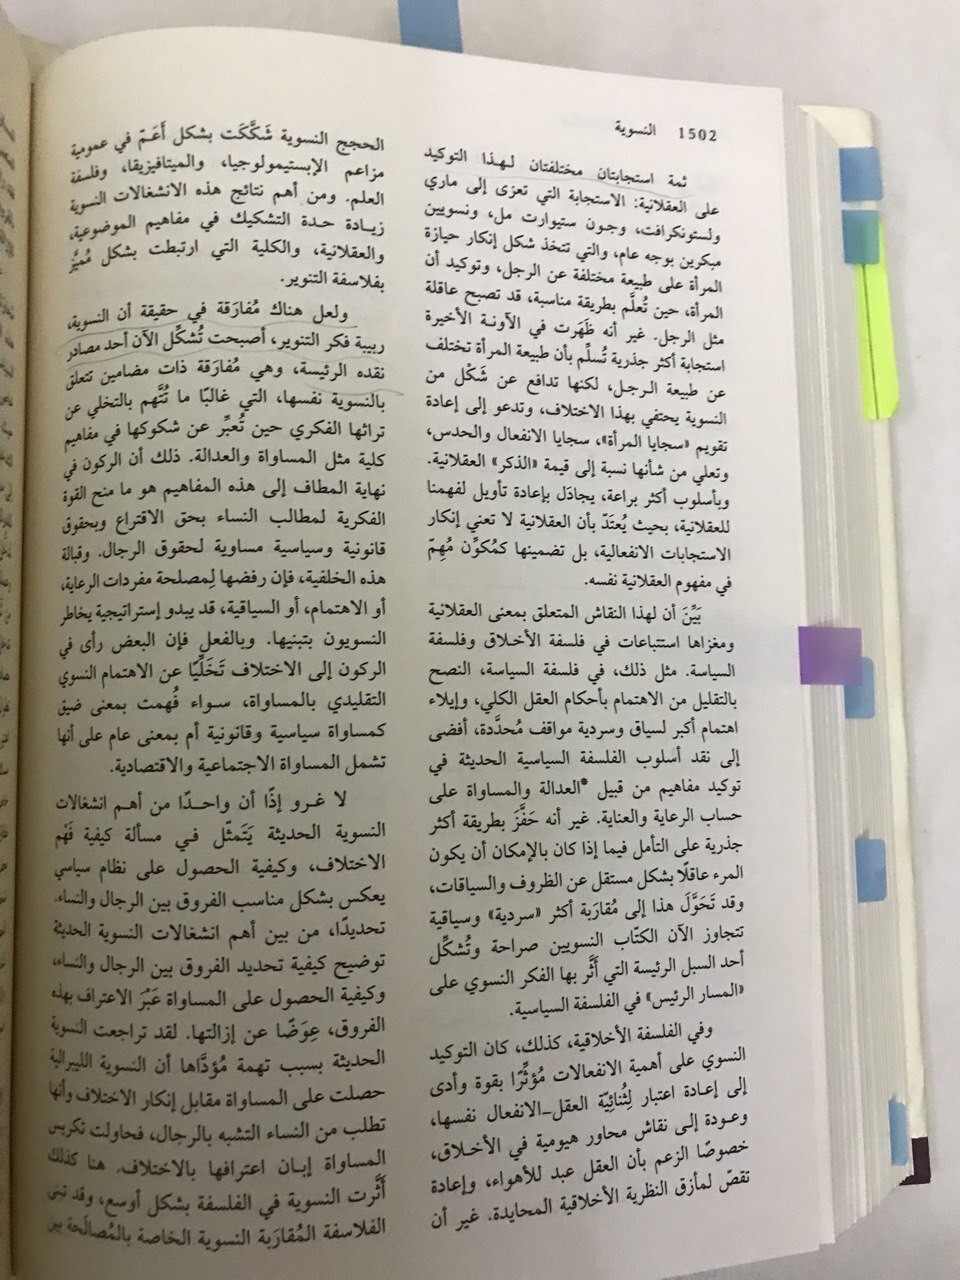 1502 النسوية
ثمة استجابتان مختلفتان لهذا التوكيد
على العقلانية: الاستجابة التي تعزى إلى ماري
ولستونكرافت، وجون ستيوارت مل، ونسويين
مبكرين بوجه عام، والتي تتخذ شكل إنكار حيازة
المرأة على طبيعة مختلفة عن الرجل، وتوكيد أن
المرأة، حين تُعلَّم بطريقة مناسبة، قد تصبح عاقلة
مثل الرجل. غير أنه ظَهَرت في الآونة الأخيرة
استجابة أكثر جذرية تُسلِّم بأن طبيعة المرأة تختلف
عن طبيعة الرجل، لكنها تدافع عن شَكْل من
النسوية يحتفي بهذا الاختلاف، وتدعو إلى إعادة
تقويم «سجايا المرأة»، سجايا الانفعال والحدس،
وتعلي من شأنها نسبة إلى قيمة «الذكر» العقلانية.
وبأسلوب أكثر براعة، يجادَل بإعادة تأويل لفهمنا
للعقلانية، بحيث يُعتَدّ بأن العقلانية لا تعني إنكار
الاستجابات الانفعالية، بل تضمينها كمُكوِّن مُهِمّ
في مفهوم العقلانية نفسه.
بَيِّنَ أن لهذا النقاش المتعلق بمعنى العقلانية
ومغزاها استتباعات في فلسفة الأخلاق وفلسفة
السياسة. مثل ذلك، في فلسفة السياسة، النصح
بالتقليل من الاهتمام بأحكام العقل الكلي، وإيلاء
اهتمام أكبر لسياق وسردية مواقف مُحدَّدة، أفضى
إلى نقد أسلوب الفلسفة السياسية الحديثة في
توكيد مفاهيم من قبيل *العدالة والمساواة على
حساب الرعاية والعناية. غير أنه حَفَّزَ بطريقة أكثر
جذرية على التأمل فيما إذا كان بالإمكان أن يكون
المرء عاقلًا بشكل مستقل عن الظروف والسياقات،
وقد تَحَوَّلَ هذا إلى مُقارَبة أكثر «سردية» وسياقية
تتجاوز الآن الكتّاب النسويين صراحة وتُشكِّل
أحد السبل الرئيسة التي أَثَّر بها الفكر النسوي على
«المسار الرئيس» في الفلسفة السياسية.
وفي الفلسفة الأخلاقية، كذلك، كان التوكيد
النسوي على أهمية الانفعالات مُؤثِّرًا بقوة وأدى
إلى إعادة اعتبار لِثُنائِيّة العقل-الانفعال نفسها،
وعودة إلى نقاش محاور هيومية في الأخلاق،
خصوصًا الزعم بأن العقل عبد للأهواء، وإعادة
تقصّ لمأزق النظرية الأخلاقية المحايدة. غير أن
الحجج النسوية شَكَّكَت بشكل أَعَمّ في عمومية
مزاعم الإبستيمولوجيا، والميتافيزيقا، وفلسفة
العلم. ومن أهم نتائج هذه الانشغالات النسوية
زيادة حدة التشكيك في مفاهيم الموضوعية،
والعقلانية، والكلية التي ارتبطت بشكل مُميَّز
بفلاسفة التنوير.
ولعل هناك مُفارَقة في حقيقة أن النسوية،
ربيبة فكر التنوير، أصبحت تُشكِّل الآن أحد مصادر
نقده الرئيسة، وهي مُفارَقة ذات مضامين تتعلق
بالنسوية نفسها، التي غالبًا ما تُتَّهم بالتخلي عن
تراثها الفكري حين تُعبِّر عن شكوكها في مفاهيم
كلية مثل المساواة والعدالة. ذلك أن الركون في
نهاية المطاف إلى هذه المفاهيم هو ما منح القوة
الفكرية لمطالب النساء بحق الاقتراع وبحقوق
قانونية وسياسية مساوية لحقوق الرجال. وقبالة
هذه الخلفية، فإن رفضها لِمصلحة مفردات الرعاية،
أو الاهتمام، أو السياقية، قد يبدو إستراتيجية يخاطر
النسويون بتبنيها. وبالفعل فإن البعض رأى في
الركون إلى الاختلاف تَخَلِّيًا عن الاهتمام النسوي
التقليدي بالمساواة، سواء فُهمت بمعنى ضيق
كمساواة سياسية وقانونية أم بمعنى عام على أنها
تشمل المساواة الاجتماعية والاقتصادية.
لا غرو إذًا أن واحدًا من أهم انشغالات
النسوية الحديثة يَتَمثّل في مسألة كيفية فَهْم
الاختلاف، وكيفية الحصول على نظام سياسي
يعكس بشكل مناسب الفروق بين الرجال والنساء.
تحديدًا، من بين أهم انشغالات النسوية الحديثة
توضيح كيفية تحديد الفروق بين الرجال والنساء،
وكيفية الحصول على المساواة عَبْرَ الاعتراف بهذه
الفروق، عِوَضًا عن إزالتها. لقد تراجعت النسوية
الحديثة بسبب تهمة مُؤدَّاها أن النسوية الليبرالية
حصلت على المساواة مقابل إنكار الاختلاف وأنها
تطلب من النساء التشبه بالرجال، فحاولت تكريس
المساواة إبان اعترافها بالاختلاف. هنا كذلك
أَثَّرت النسوية في الفلسفة بشكل أوسع، وقد تبنى
الفلاسفة المُقارَبة النسوية الخاصة بالمُصالَحة بين